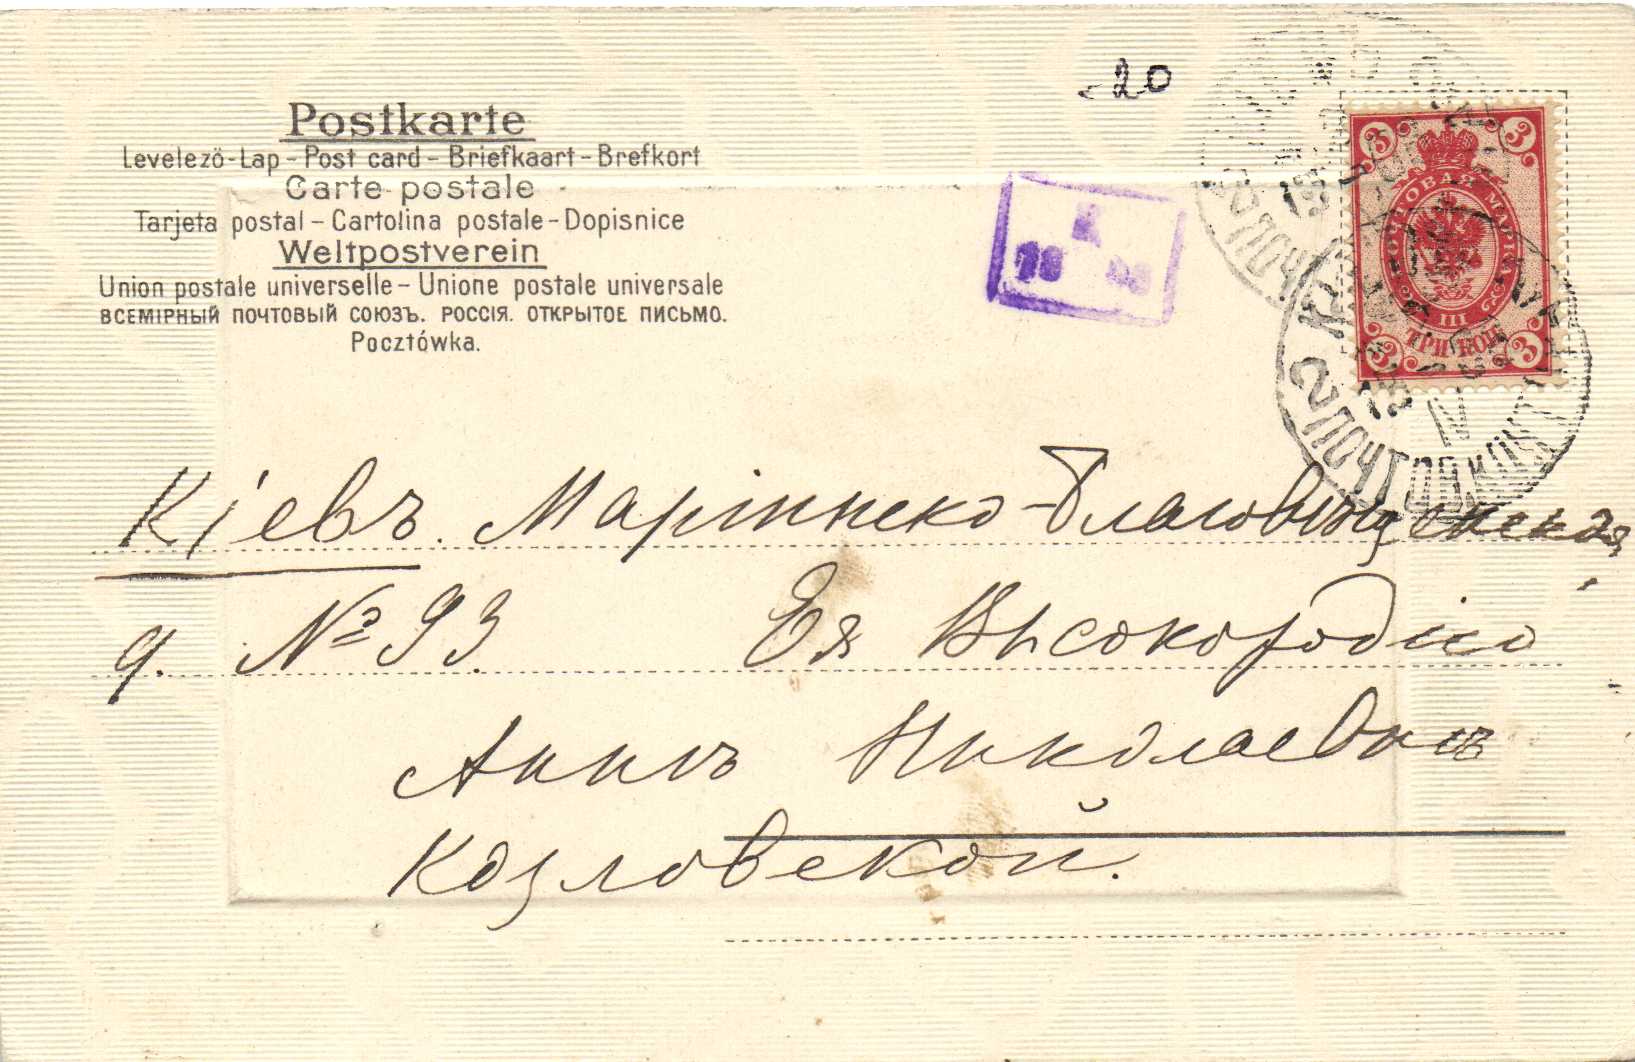 -20
Postkarte
Levelező-Lap – Post card – Briefkaart – Brefkort
Carte postale
Tarjeta postal – Cartolina postale – Dopisnice
Weltpostverein
Union postale universelle – Unione postale universale
ВСЕМІРНЫЙ ПОЧТОВЫЙ СОЮЗЪ. РОССІЯ. ОТКРЫТОЕ ПИСЬМО.
Pocztówka.
3 3
ПОЧТОВАЯ МАРКА
III
ТРИ КОП
3 3
2 ПОЧТОВ
Кіевъ. Маріинско-Благовѣщенская,
д. № 93. Ея Высокородію
Аннѣ Николаевнѣ
Козловской.